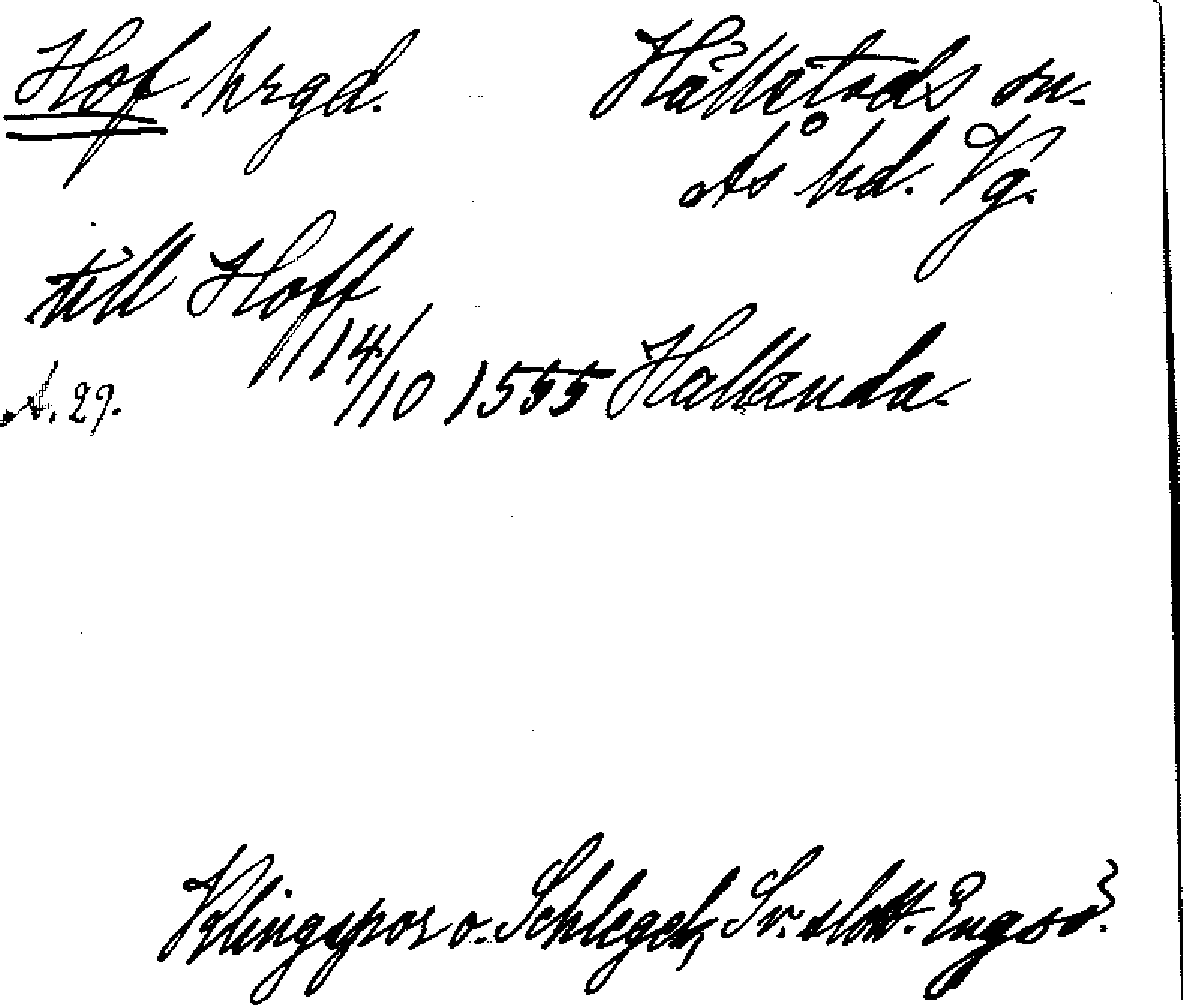 Hof hrgd. Hällstads sn.
Ås hd. Vg.
till Hoff
14/10 1555 Hallanda.
A. 29.
Klingspor o. Schlegel, Sv. slott. Engsö.